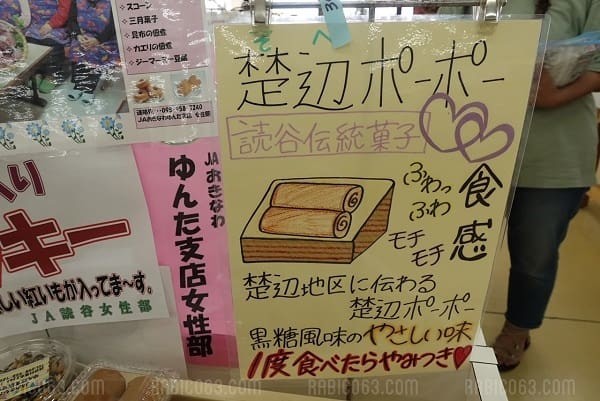 ・スコーン
・三月菓子
・昆布の佃煮
・カエリの佃煮
・ジーマーミー豆腐
JAおきなわゆんた支店 女性部
入り
ッキー
しい紅いもが入ってま〜す。
JA読谷女性部
JAおきなわ
ゆんた支店女性部
楚辺ポーポー
読谷伝統菓子
ふわっ
ふわ
モチ
モチ
食感
楚辺地区に伝わる
楚辺ポーポー
黒糖風味のやさしい味
1度食べたらやみつき♥
RABICO63.COM
RABICO63.COM
RABICO63.COM